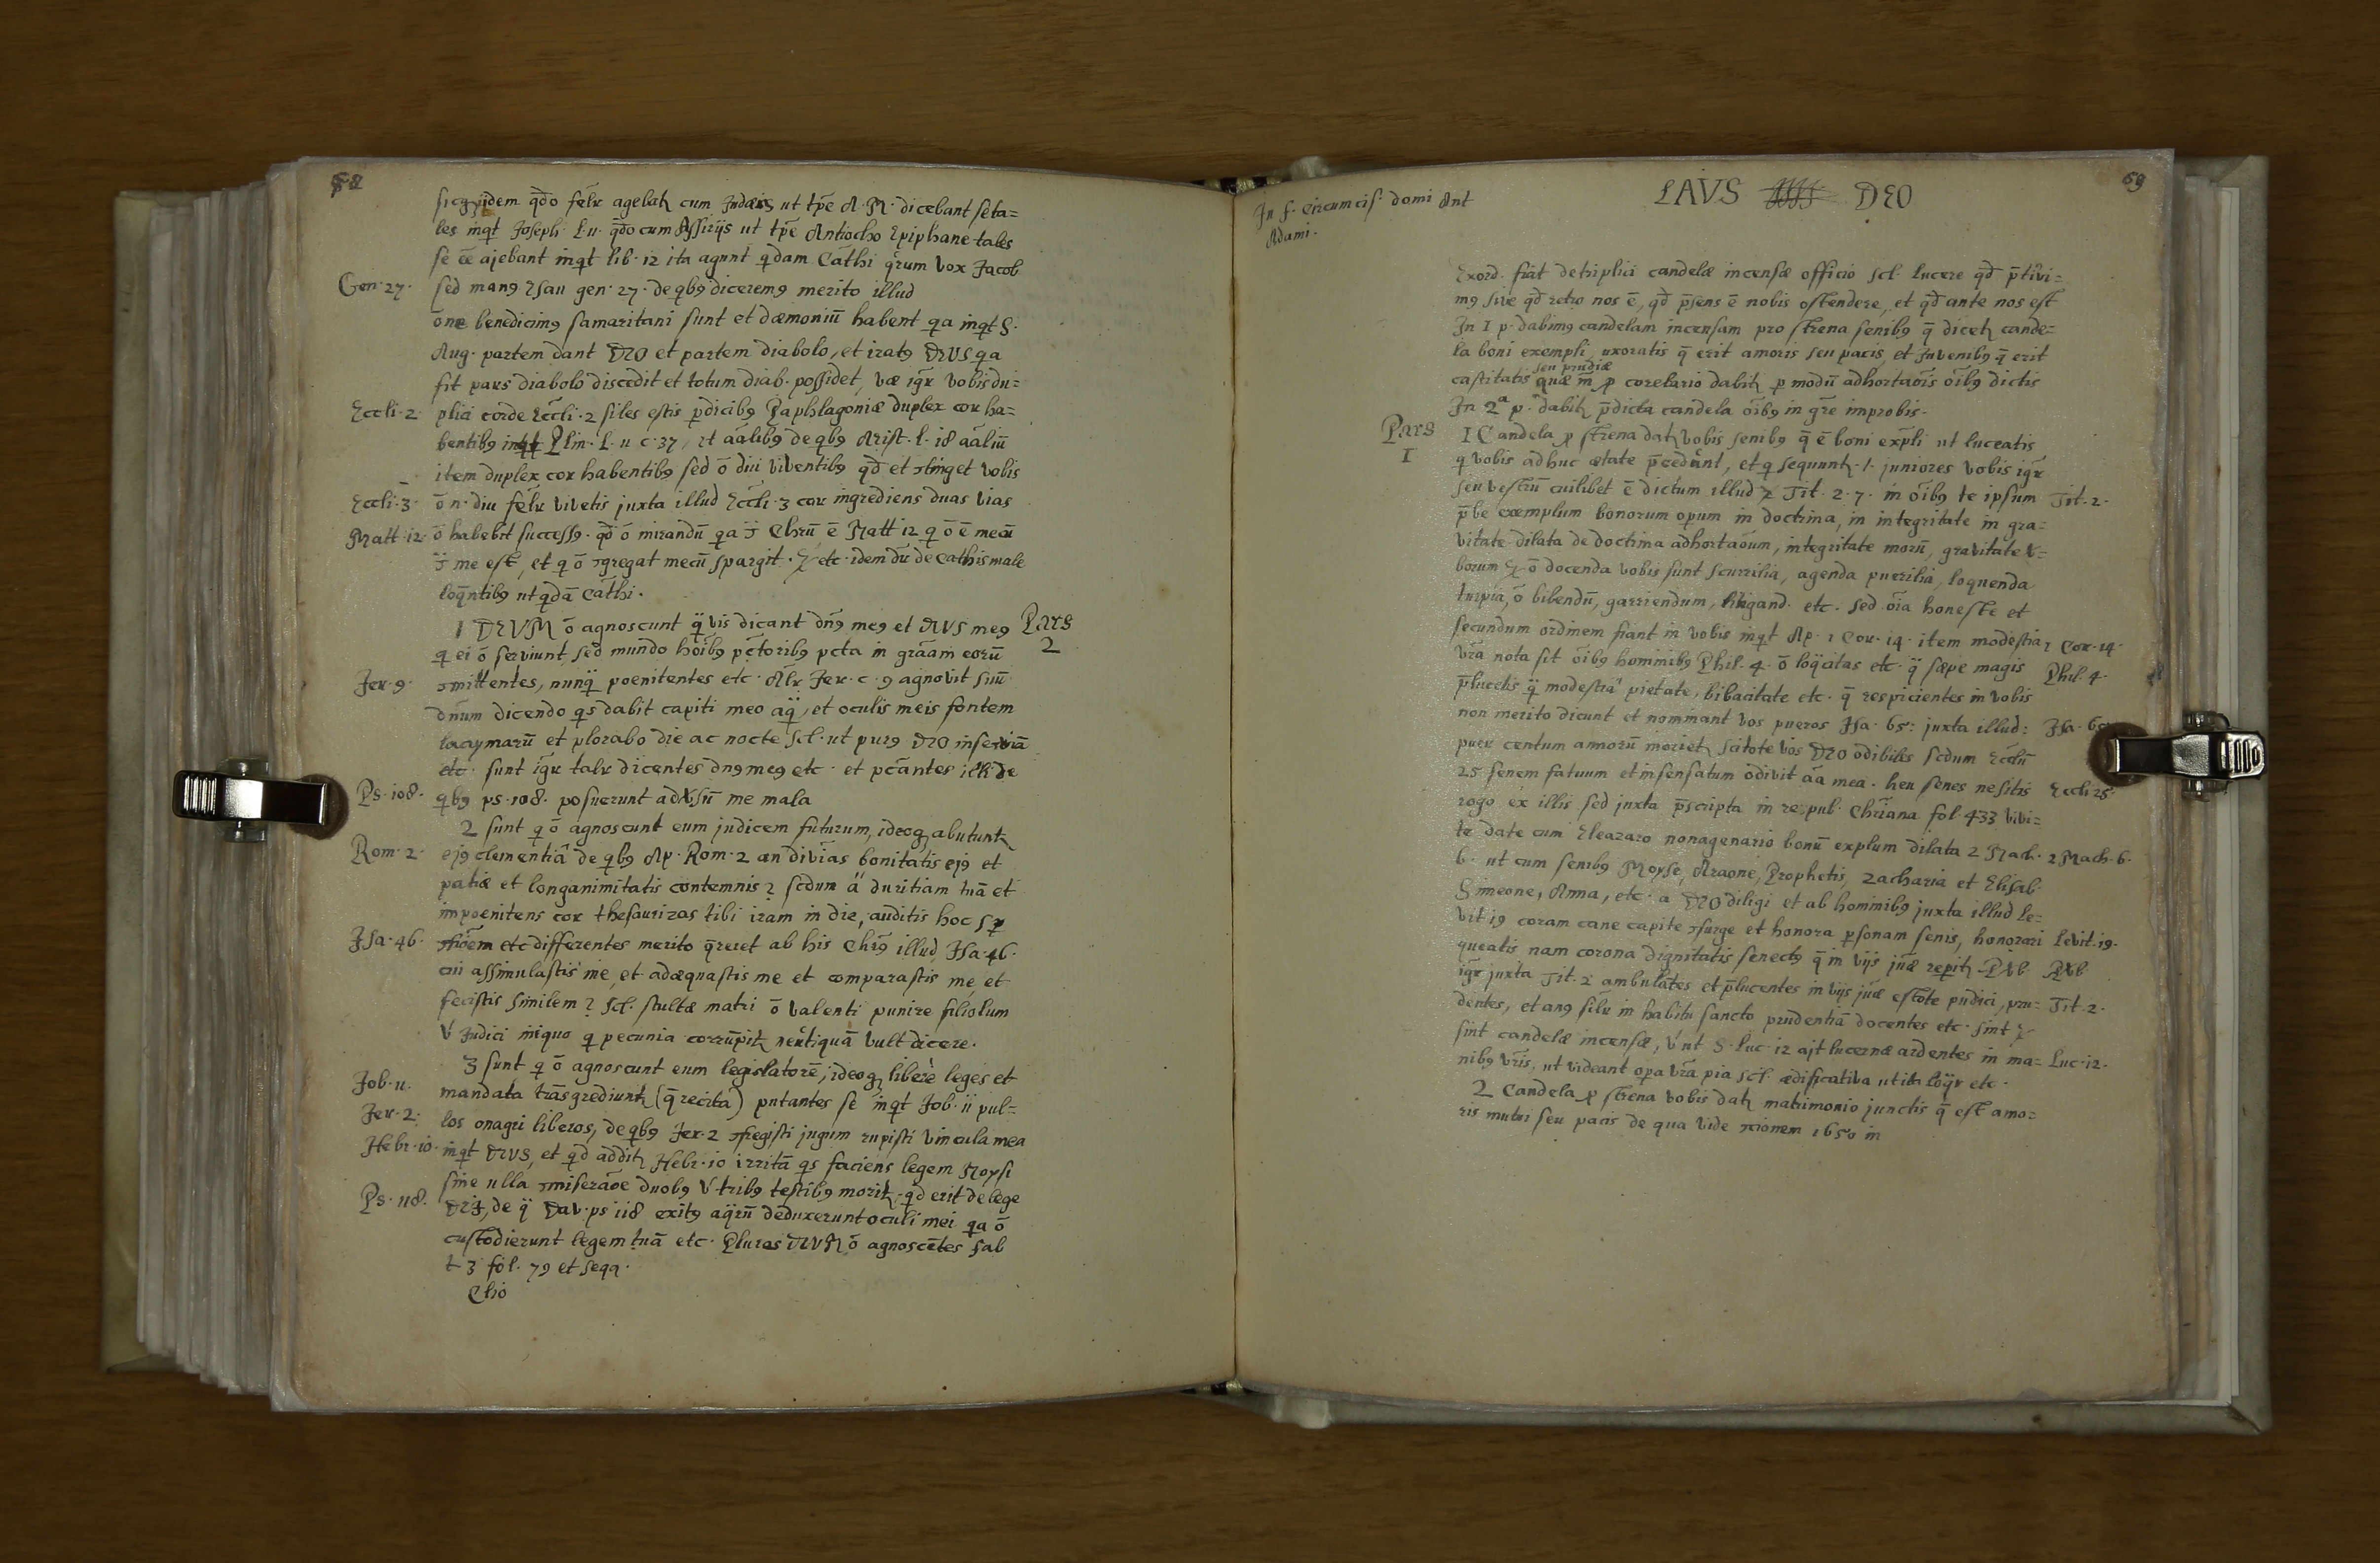 58
siquidem qdo felr agelatr cum Judæis ut tpē A. M. dicebant se ta=
les inqt Joseph. L. 11. qdo cum Assiriis ut tpē Antiocho Epiphane tales
se ēē ajebant inqt lib. 12 ita agunt qdam Cathi qrum vox Jacob
Gen. 27. sed mang Esau gen. 27. de qbg diceremg merito illud
one benedicimg samaritani sunt et dæmoniū habent qa inqt S.
Aug. partem dant DEO et partem diabolo, et iratg DEUS qa
fit pars diabolo discedit et totum diab. possidet, væ igr vobis du=
Eccli. 2 plici corde Eccli. 2 siles estis pdicibg Paphlagoniæ duplex cor ha=
bentibg Plin. L. 11 c. 37, et aalibg de qbg Arist. l. 18 aaliū
item duplex cor habentibg sed ō diu viventibg qd et ɔtinget vobis
Eccli. 3. ō n. diu felr vivetis juxta illud Eccli. 3 cor ingrediens duas vias
Matt. 12. ō habebit successg. qd ō mirandū qa Chrū ē Matt 12 q ō ē mecū
me est, et q ō ɔgregat mecū spargit. etc. idem dū de Cathis male
loqntibg ut qdā Cathi.
1 DEUM ō agnoscunt qvis dicant dng meg et DEUS meg Pars
q ei ō serviunt sed mundo hoibg pctoribg pcta in graam eorū 2
Jer. 9. ɔmittentes, nunq poenitentes etc. Alr Jer. c. 9 agnovit suū
dnum dicendo qs dabit capiti meo aq, et oculis meis fontem
lacymarū et plorabo die ac nocte scl. ut purg DEO inserviā
etc. sunt igr talr dicentes dng meg etc. et pcantes illi de
Ps. 108. qbg ps. 108. posuerunt advsū me mala
2 sunt q ō agnoscunt eum judicem futurum, ideoq abutuntr
Rom. 2. ejg clementiâ de qbg Ap. Rom. 2 an divias bonitatis ejg et
patiæ et longanimitatis contemnis? scdum a duritiam tuā et
impoenitens cor thesaurizas tibi iram in die, auditis hoc sp
Isa. 46. etc differentes merito qreret ab his Chrg illud Isa. 46.
cui assimulastis me, et adæquastis me et comparastis me, et
fecistis similem? scl. stultæ matri ō valenti punire filiolum
v Judici iniquo q pecunia corrūpitr neutiquā vult dicere.
3 sunt q ō agnoscunt eum legislatorē, ideoq liberè leges et
Job. 11. mandata trāsgrediuntr (q recita) putantes se inqt Job. 11 pul=
Jer. 2. los onagri liberos, de qbg Jer. 2 ɔfregisti jugum rupisti vincula mea
Hebr. 10. inqt DEUS, et qd additr Hebr. 10 irritā qs faciens legem Moysi
sine ulla ɔmiseraoe duobg v tribg testibg moritr, qd erit de lege
Ps. 118. DEI, de q Dav. ps 118 exitg aqrū deduxerunt oculi mei qa ō
custodierunt legem tuā etc. Plures DEUM ō agnoscētes sab
t 3 fol. 79 et seqq.
Clio
In f. Circumcis. domi Ant
Adami.
LAUS DEO
59
Exord. fiat de triplici candelæ incensæ officio scl. lucere qd ptivi=
mg sive qd retro nos ē, qd psens ē nobis ostendere, et qd ante nos est
In 1 p. dabimg candelam incensam pro strena senibg q dicetr cande=
la boni exempli, uxoratis q erit amoris seu pacis, et Juvenibg q erit
seu prudiæ
castitatis quæ m p corelario dabitr p modū adhortaōis oibg dictis
In 2a p. dabitr pdicta candela oibg in gre improbis.
Pars 1 Candela p strena datr vobis senibg q ē boni expli ut luceatis
1 q vobis adhuc ætate pcedant, et q sequuntr. l. juniores vobis igr
seu vestrū cuilibet ē dictum illud Tit. 2. 7. in oibg te ipsum Tit. 2.
pbe exemplum bonorum opum in doctrina, in integritate in gra=
vitate dilata de doctrina adhortaoum, integritate morū, gravitate v=
borum ō docenda vobis sunt scurrilia, agenda puerilia, loquenda
turpia, ō bibendū, garriendum, litigand. etc. sed oia honeste et
secundum ordinem fiant in vobis inqt Ap. 1 Cor. 14. item modestia 1 Cor. 14.
vra nota sit oibg hominibg Phil. 4. ō loqcitas etc. q sæpe magis Phil. 4.
plucetis q modestiâ pietate, bibacitate etc. q respicientes in vobis
non merito dicunt et nominant vos pueros Isa. 65: juxta illud: Isa. 65
puer centum annorū morietr scitote vos DEO odibiles scdum Ecclū
25 senem fatuum et insensatum odivit aa mea. heu senes ne sitis Eccli 25.
rogo ex illis sed juxta pscripta in re pub. Chriana fol. 433 vivi=
te date cum Eleazaro nonagenario bonū explum dilata 2 Mach. 2 Mach. 6.
6. ut cum senibg Moyse, Araone, Prophetis, Zacharia et Elisab.
Simeone, Anna, etc. a DEO diligi et ab hominibg juxta illud le=
vit 19 coram cane capite ɔsurge et honora psonam senis, honorari Levit. 19.
queatis nam corona dignitatis senectg q in viis juæ repitr PVb PVb
igr juxta Tit. 2 ambulātes et plucentes in viis juæ estote pudici, pru= Tit. 2.
dentes, et ang silr in habitu sancto prudentiā docentes etc. sint
sint candelæ incensæ, v ut S. Luc. 12 ait lucernæ ardentes in ma= Luc. 12.
nibg vris, ut videant opa vra pia scl. ædificativa utilia loqr etc.
2 Candela p strena vobis datr matrimonio junctis q est amo=
ris mutui seu pacis de qua vide ɔcionem 1650 in